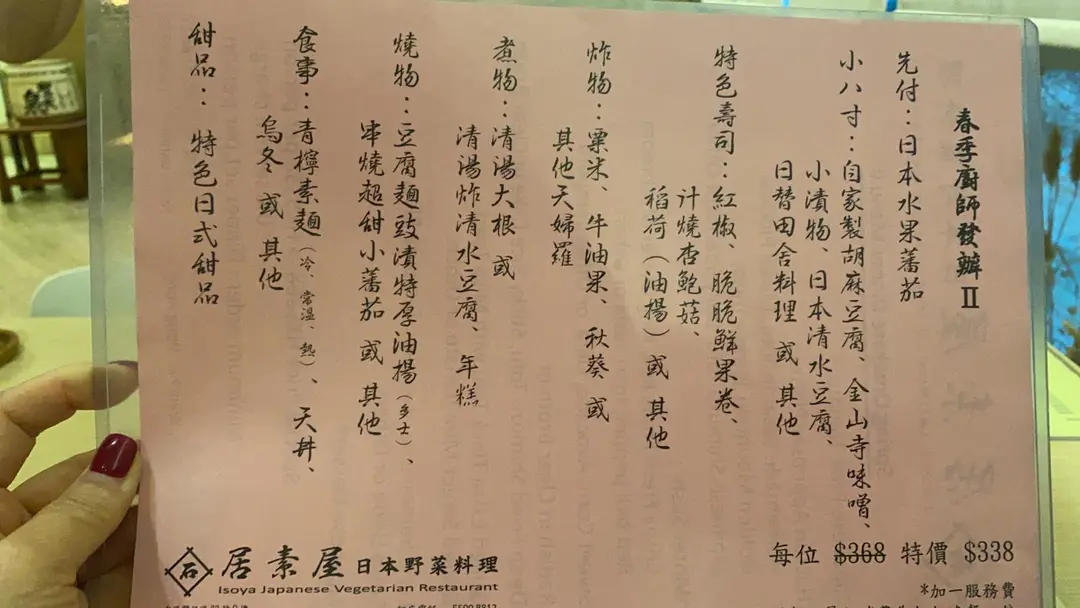 春季廚師發辦 II
先付：日本水果蕃茄
小八寸：自家製胡麻豆腐、金山寺味噌、
小漬物、日本清水豆腐、
日替田舍料理 或 其他
特色壽司：紅椒、脆脆鮮果卷、
汁燒杏鮑菇、
稻荷（油揚）或 其他
炸物：粟米、牛油果、秋葵 或
其他天婦羅
煮物：清湯大根 或
清湯炸清水豆腐、年糕
燒物：豆腐麵豉漬特厚油揚（多士）、
串燒超甜小蕃茄 或 其他
食事：青檸素麵（冷、常溫、熱）、天丼、
烏冬 或 其他
甜品： 特色日式甜品
每位 $368 特價 $338
*加一服務費
石 居素屋 日本野菜料理
Isoya Japanese Vegetarian Restaurant